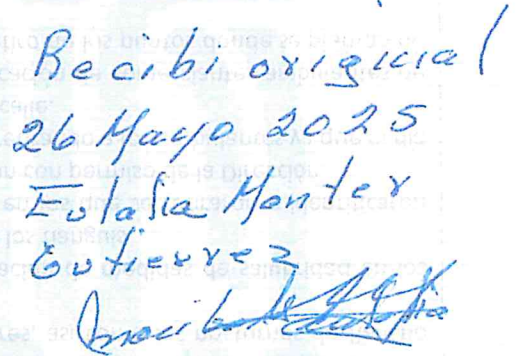 Recibi original
26 Mayo 2025
Eulalia Monter
Gutierrez